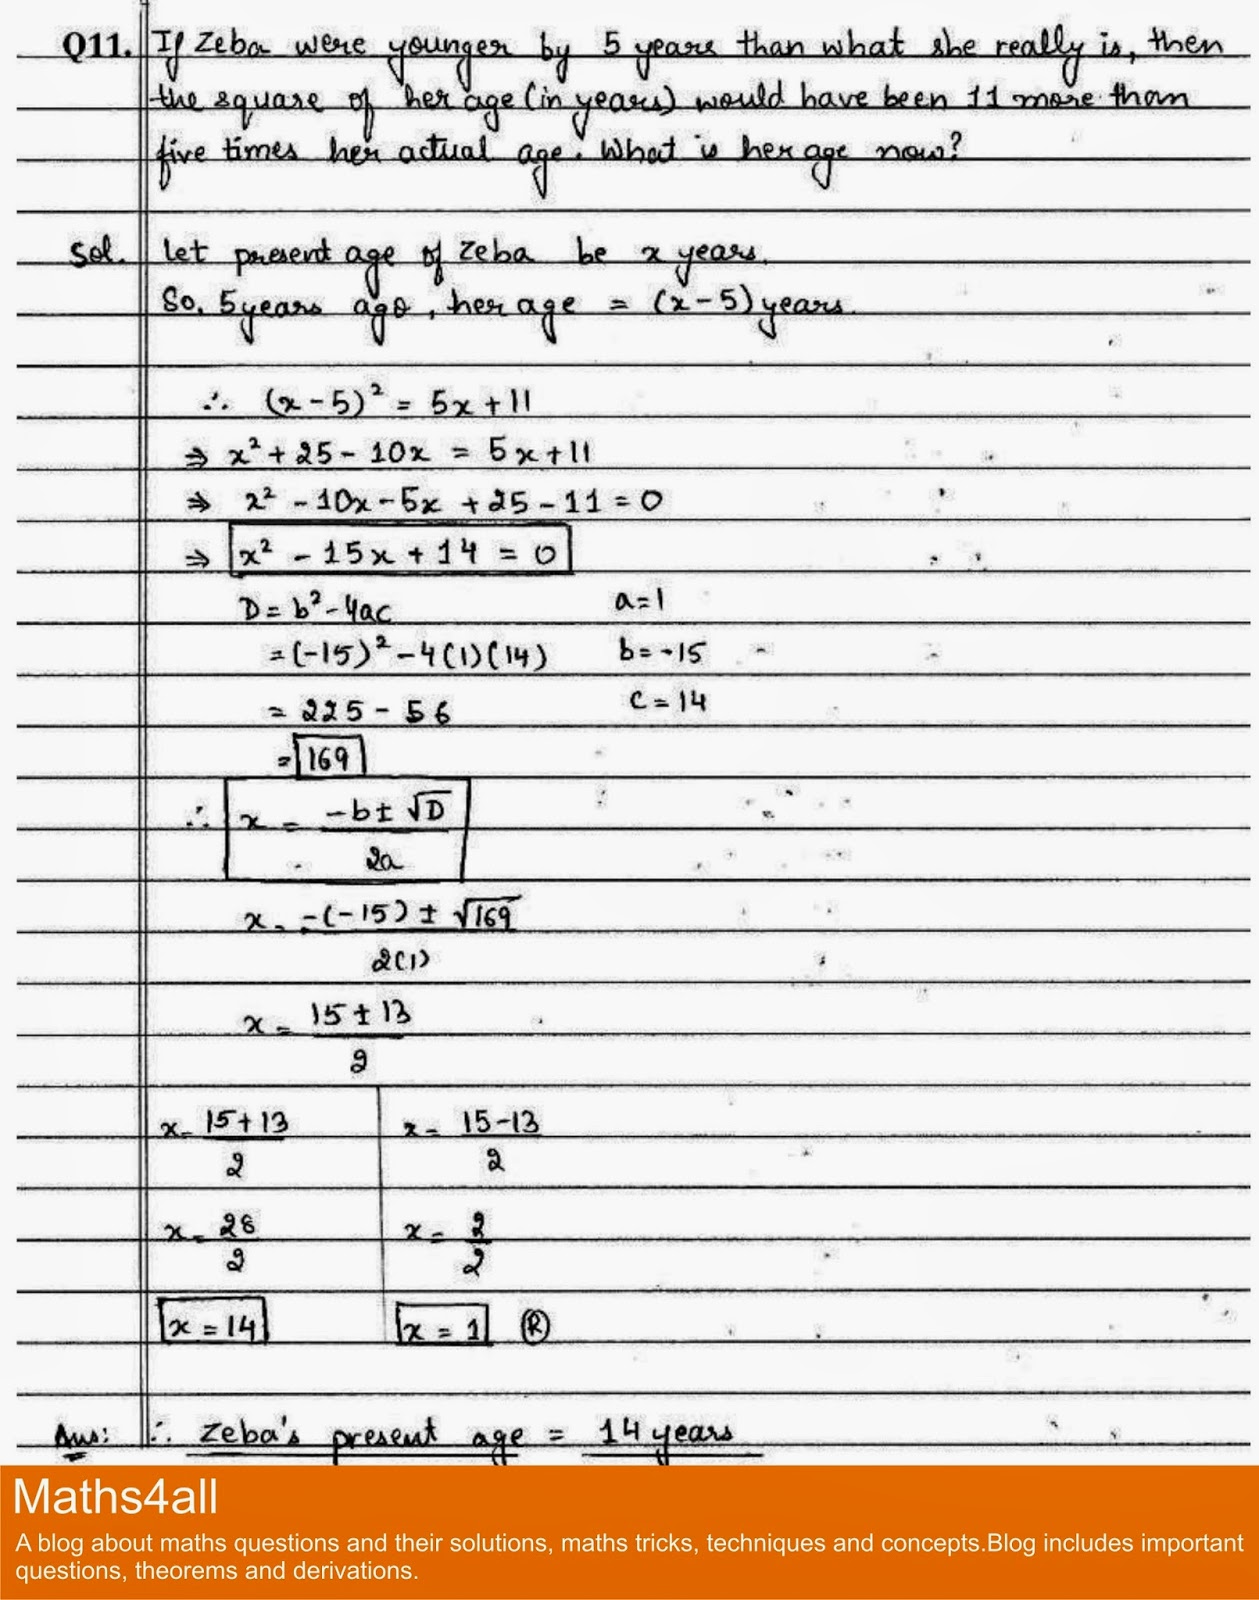 Q11. If Zeba were younger by 5 years than what she really is, then
the square of her age (in years) would have been 11 more than
five times her actual age. What is her age now?
Sol. Let present age of Zeba be x years.
So, 5 years ago, her age = (x-5) years.
∴ (x-5)² = 5x+11
⇒ x² + 25 - 10x = 5x+11
⇒ x² - 10x - 5x + 25 - 11 = 0
⇒ x² - 15x + 14 = 0
D = b² - 4ac a=1
= (-15)² - 4(1)(14) b=-15
= 225 - 56 c=14
= 169
∴ x = -b ± √D
2a
x = -(-15) ± √169
2(1)
x = 15 ± 13
2
x = 15+13 x = 15-13
2 2
x = 28 x = 2
2 2
x = 14 x = 1 R
Ans: ∴ Zeba's present age = 14 years
Maths4all
A blog about maths questions and their solutions, maths tricks, techniques and concepts.Blog includes important
questions, theorems and derivations.